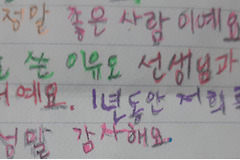 정말 좋은 사람 이예요
쓴 이유도 선생님과
예요. 1년동안 저희
정말 감사해요.